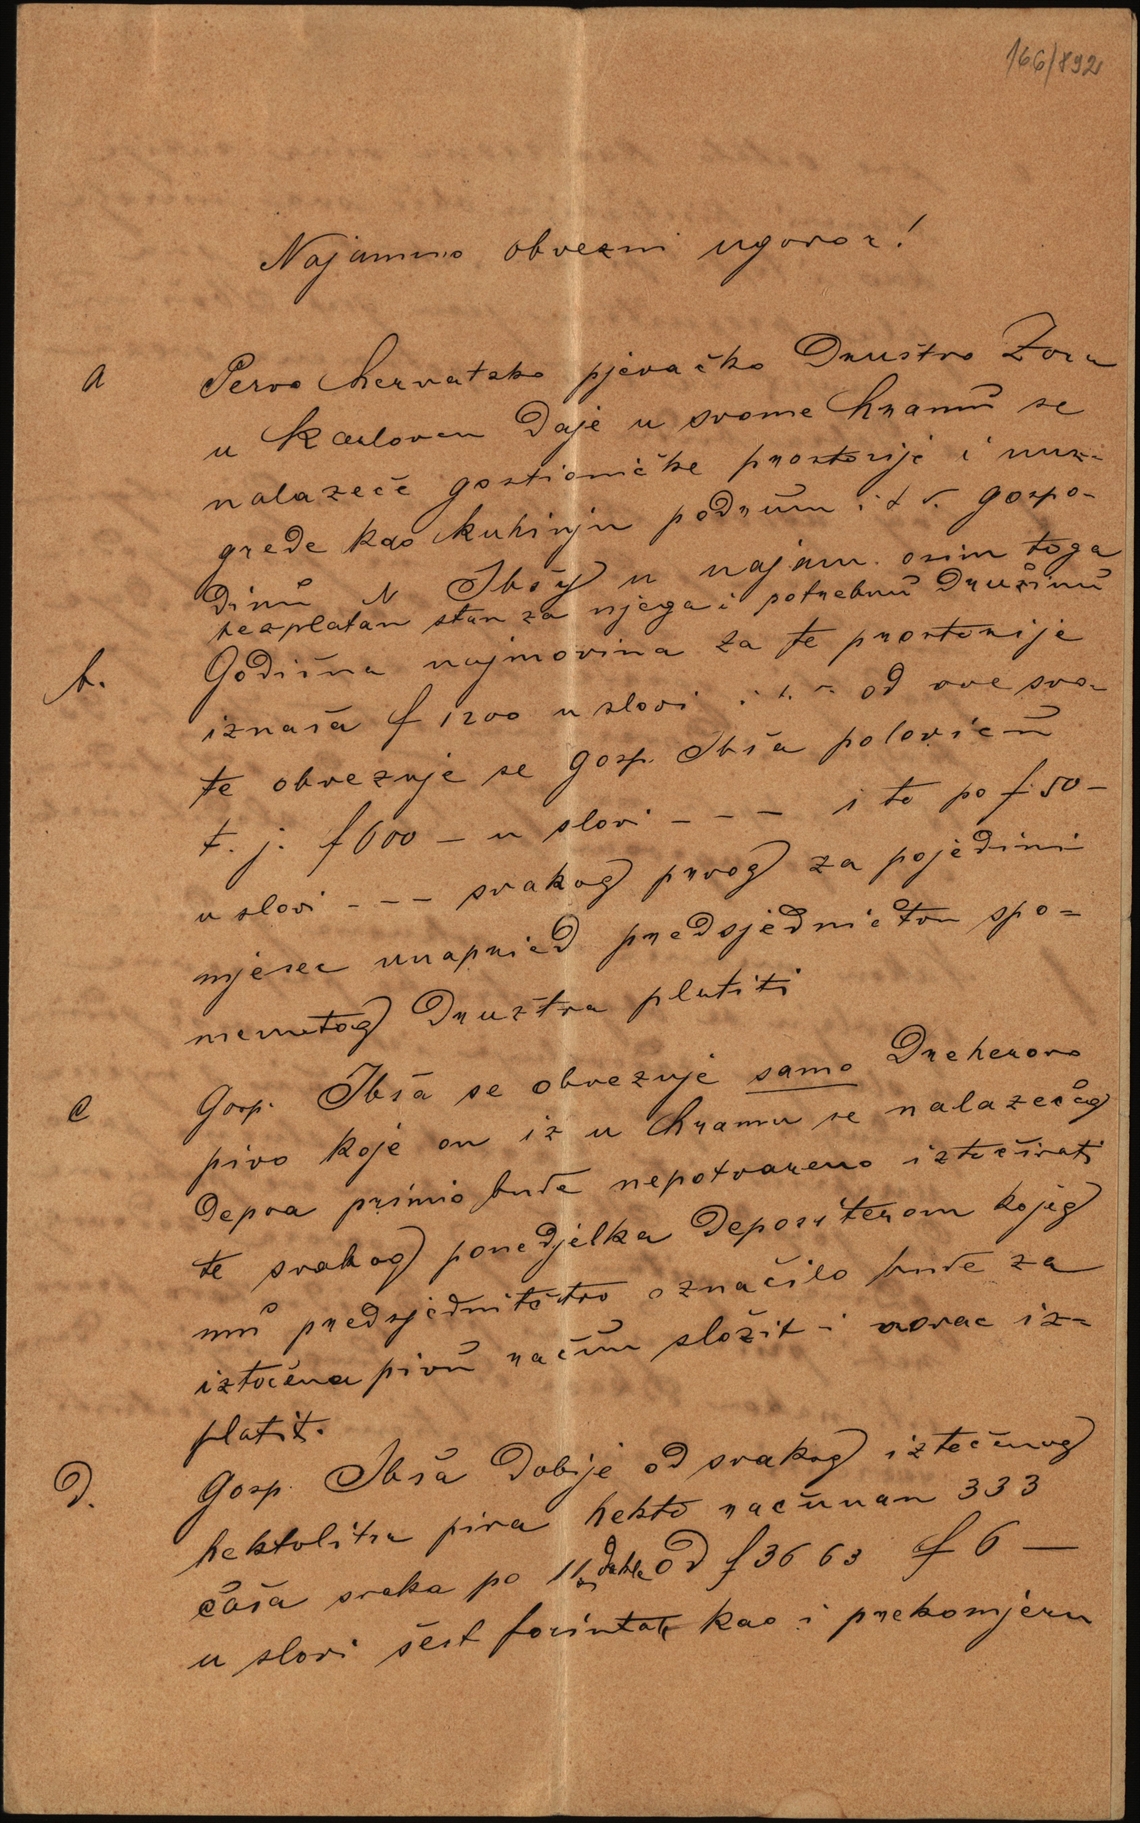 166/892
Najamno obvezni ugovor!
a Pervo hervatsko pjevačko Društvo Zora
u Karlovcu daje u svome hramŭ se
nalazeće gostioničke prostorije i nuz-
grede kao kuhinju podrŭm i t d. gospo-
dinŭ N Ibšŭ u najam. osim toga
bezplatan stan za njega i potrebnŭ družinŭ
b. Godišna najmovina za te prostorije
iznaša f 1200 u slovi od ove svo-
te obvezuje se gosp. Ibša polovicŭ
t. j. f 600 – u slovi - - - i to po f 50 –
u slovi - - - svakog prvog za pojedini
mjesec unapried predsjedničtvu spo-
menutog družtva platiti
c Gosp. Ibša se obvezuje samo Dreherovo
pivo koje on iz u hramu se nalazećeg
depoa primio bude nepotvareno iztočivati
te svakog ponedjelka depositerom kojeg
mŭ predsjedničtvo označilo bude za
iztočena pivŭ račŭn složit i novac iz-
platit.
d. Gosp. Ibša dobije od svakog iztočenog
hektolitra piva hekto račŭnan 333
čaša svaka po 11 dakle od f 36 63 f 6 —
u slovi šest forintah kao i prekomjeru